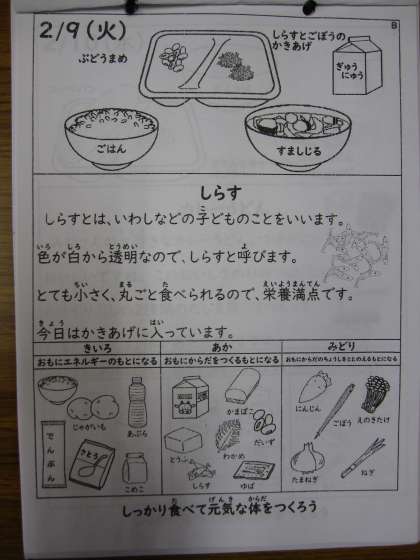 2/9(火)
B
ぶどうまめ
しらすとごぼうの
かきあげ
ぎゅう
にゅう
ごはん
すましじる
しらす
しらすとは、いわしなどの子どものことをいいます。
色が白から透明なので、しらすと呼びます。
とても小さく、丸ごと食べられるので、栄養満点です。
今日はかきあげに入っています。
きいろ
あか
みどり
おもにエネルギーのもとになる
おもにからだをつくるもとになる
おもにからだのちょうしをととのえるもとになる
じゃがいも
あぶら
でんぷん
さとう
こめこ
かまぼこ
だいず
とうふ
わかめ
しらす
ゆば
にんじん
ごぼう
えのきたけ
たまねぎ
ねぎ
しっかり食べて元気な体をつくろう